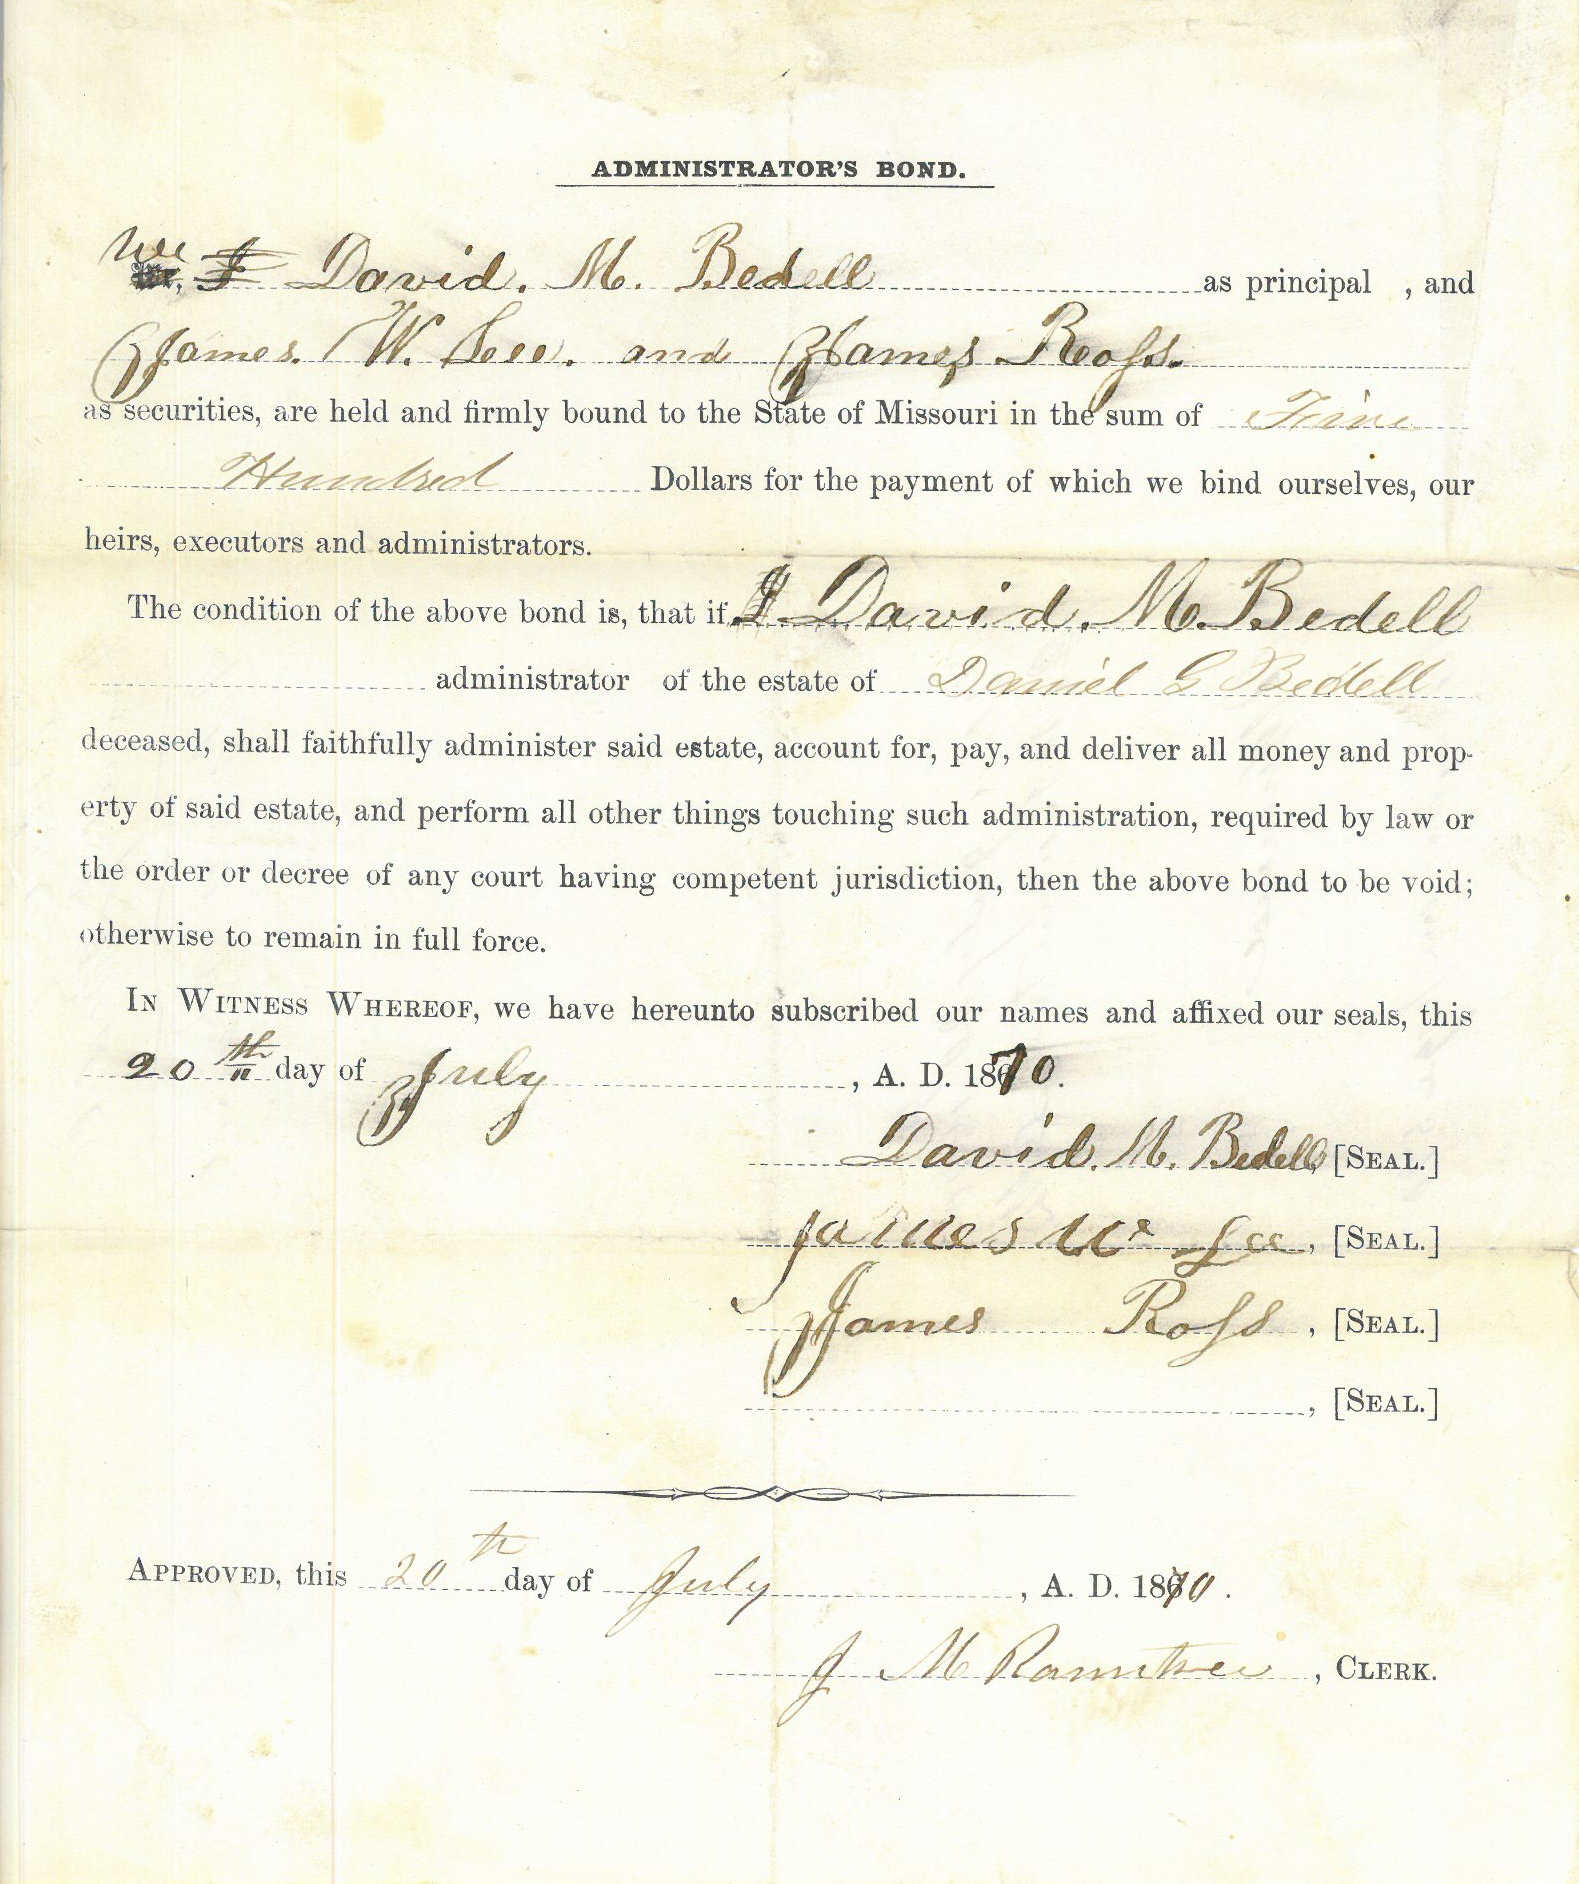 ADMINISTRATOR'S BOND.
We
We, I David. M. Bedell as principal , and
James. W. Lee. and James Ross.
as securities, are held and firmly bound to the State of Missouri in the sum of Five
Hundred Dollars for the payment of which we bind ourselves, our
heirs, executors and administrators.
The condition of the above bond is, that if I. David. M. Bedell
administrator of the estate of Daniel G Bedell
deceased, shall faithfully administer said estate, account for, pay, and deliver all money and prop-
erty of said estate, and perform all other things touching such administration, required by law or
the order or decree of any court having competent jurisdiction, then the above bond to be void;
otherwise to remain in full force.
IN WITNESS WHEREOF, we have hereunto subscribed our names and affixed our seals, this
20th day of July , A. D. 1870.
David. M. Bedell, [SEAL.]
James W. Lee, [SEAL.]
James Ross , [SEAL.]
, [SEAL.]
APPROVED, this 20th day of July , A. D. 1870 .
J M Rountree , CLERK.